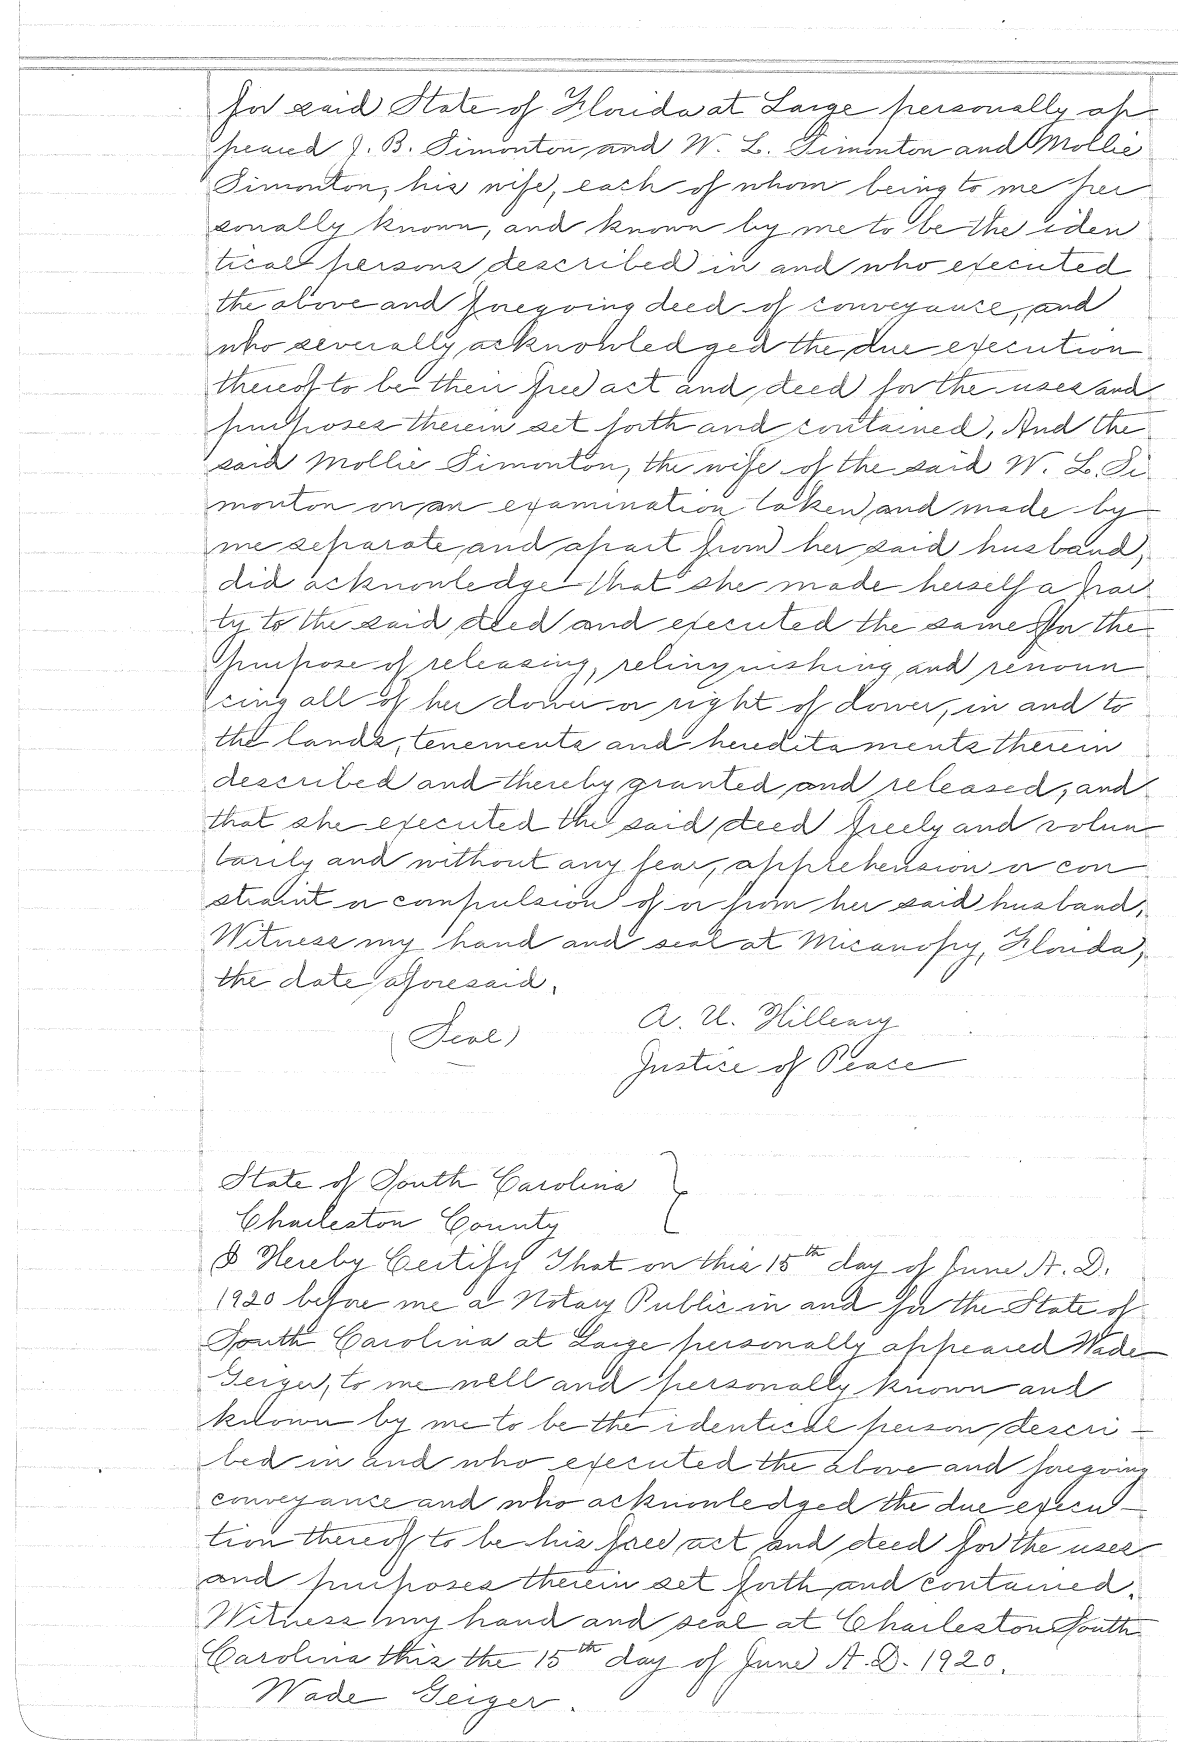 for said State of Florida at Large personally ap
peared J. B. Simonton and W. L. Simonton and Mollie
Simonton, his wife, each of whom being to me per
sonally known, and known by me to be the iden
tical persons described in and who executed
the above and foregoing deed of conveyance, and
who severally acknowledged the due execution
thereof to be their free act and deed for the uses and
purposes therein set forth and contained. And the
said Mollie Simonton, the wife of the said W. L. Si
monton on an examination taken and made by
me separate and apart from her said husband,
did acknowledge that she made herself a par
ty to the said deed and executed the same for the
purpose of releasing, relinquishing and renoun
cing all of her dower or right of dower, in and to
the lands, tenements and hereditaments therein
described and thereby granted and released, and
that she executed the said deed freely and volun
tarily and without any fear, apprehension or con
straint or compulsion of or from her said husband,
Witness my hand and seal at Micanopy, Florida,
the date aforesaid.
A. U. Hilleary
(Seal)
Justice of Peace
State of South Carolina }
Charleston County
I Hereby Certify That on this 15th day of June A. D.
1920 before me a Notary Public in and for the State of
South Carolina at Large personally appeared Wade
Geiger, to me well and personally known and
known by me to be the identical person descri-
bed in and who executed the above and foregoing
conveyance and who acknowledged the due execu-
tion thereof to be his free act and deed for the uses
and purposes therein set forth and contained.
Witness my hand and seal at Charleston South
Carolina this the 15th day of June A.D. 1920.
Wade Geiger.